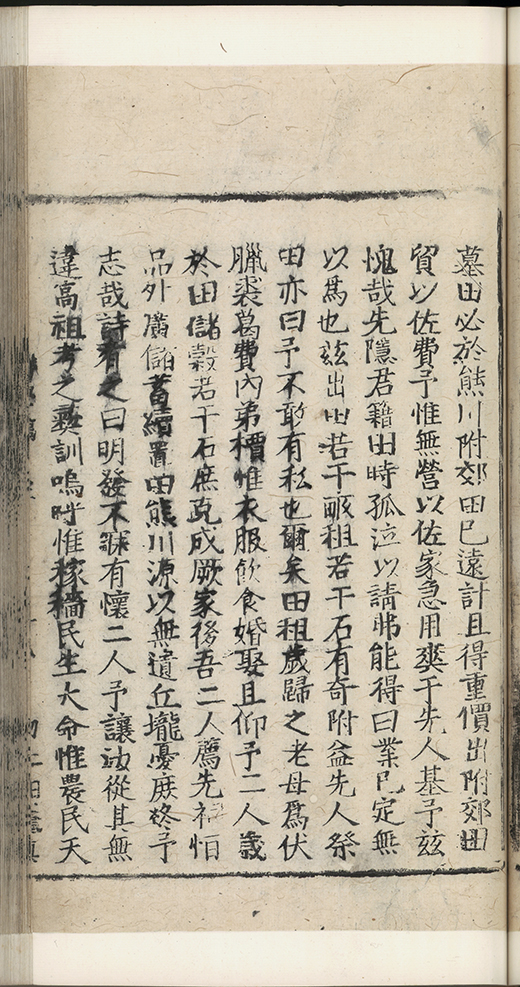 墓田必於熊川附郊田已遠計且得重價出附郊田
貿以佐費予惟無營以佐家急用爽干先人基予茲
愧哉先隱君籍田時孤泣以請弗能得曰業已定無
以爲也玆出田若干畝租若干石有奇附益先人祭
田亦曰予不敢有私也爾矣田租歲歸之老母爲伏
臘裘葛費內弟檟惟衣服飲食婚娶且仰予二人歲
於田儲穀若干石庶克成厥家後吾二人薦先祠怕
品外廣儲蓄續置田熊川源以無遺丘壠憂庶終予
志哉詩有之曰明發不寐有懷二人予讓汝從其無
違高祖考之彝訓嗚呼惟稼穡民生大命惟農民天